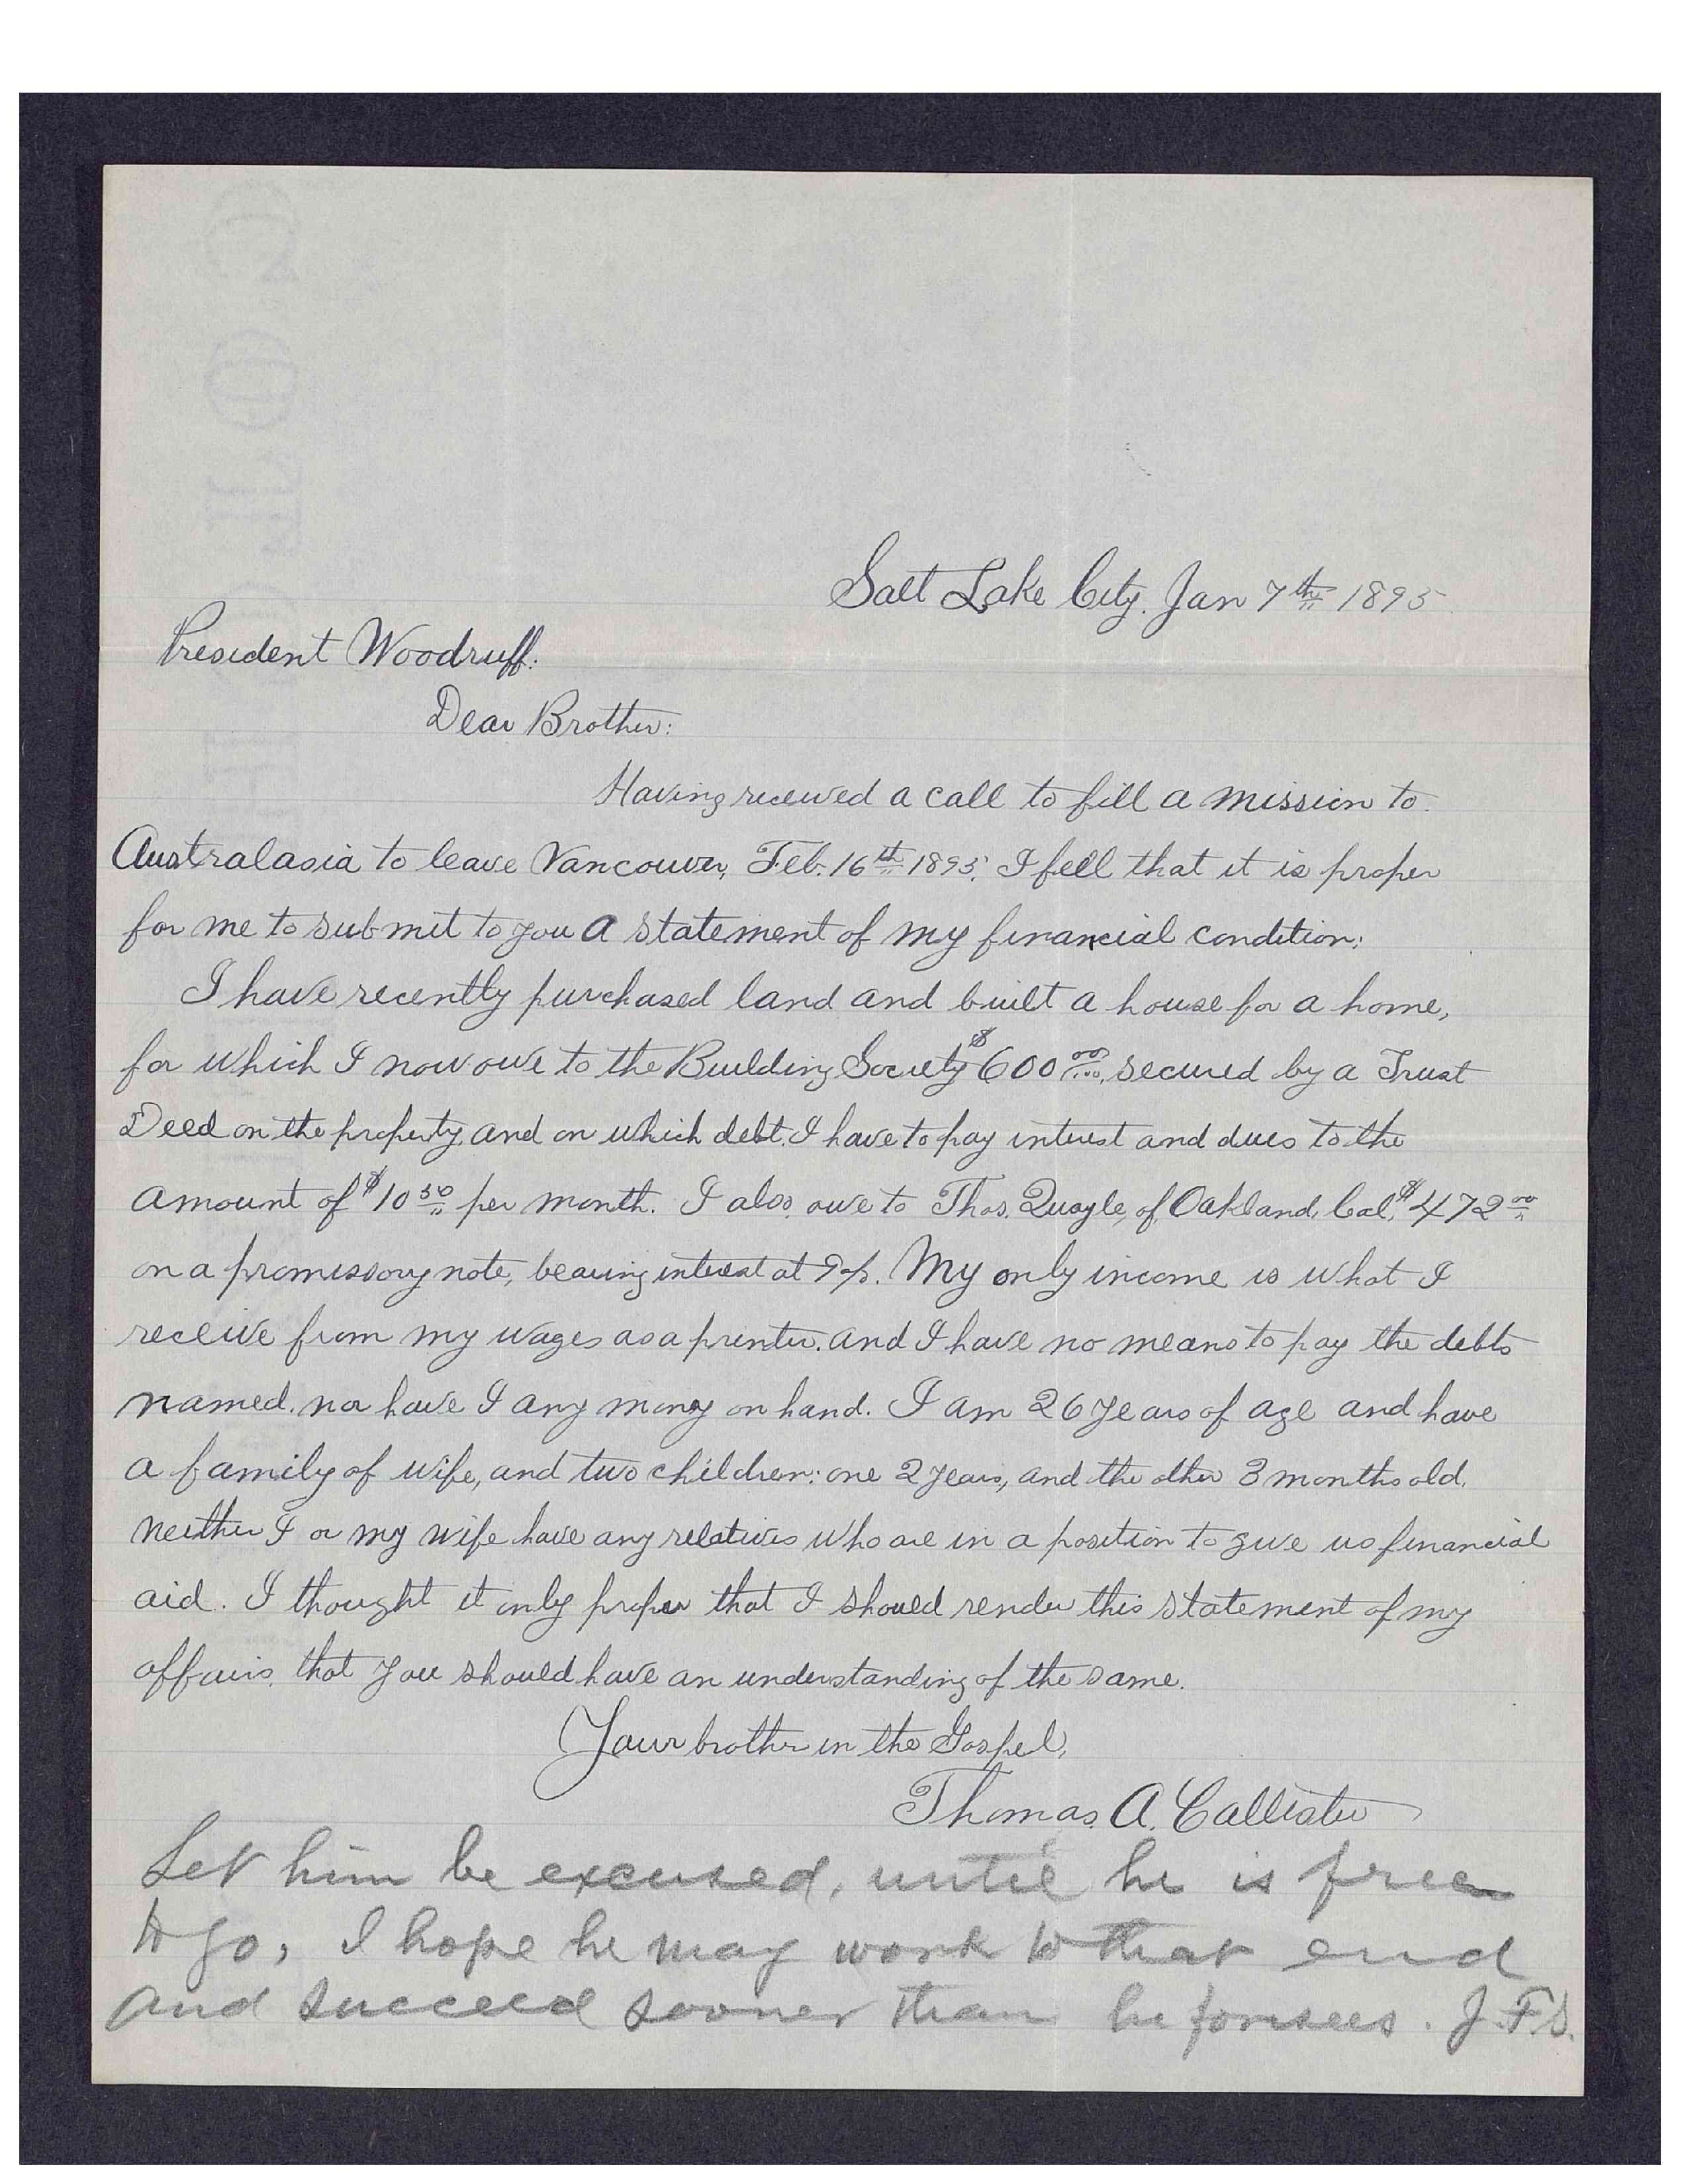 Salt Lake City. Jan 7th 1895
President Woodruff.
Dear Brother:
Having received a call to fill a mission to
Australasia to leave Vancouver, Feb. 16th 1895, I fell that it is proper
for me to submit to you a statement of my financial condition:
I have recently purchased land and built a house for a home,
for which I now owe to the Building Society $600.00, secured by a Trust
Deed on the property, and on which debt, I have to pay interest and dues to the
amount of $10 50 per month. I also owe to Thos. Quayle, of Oakland, Cal, $472 00
on a promissory note, bearing interest at 9%. My only income is what I
receive from my wages as a printer, and I have no means to pay the debts
named, nor have I any money on hand. I am 26 years of age and have
a family of wife, and two children: one 2 years, and the other 3 months old,
neither I or my wife have any relatives who are in a position to give us financial
aid. I thought it only proper that I should render this statement of my
affairs, that you should have an understanding of the same.
Your brother in the Gospel,
Thomas. A. Callister
Let him be excused, until he is free
to go, I hope he may work to that end
and succeed sooner than he forsees. J. F S.